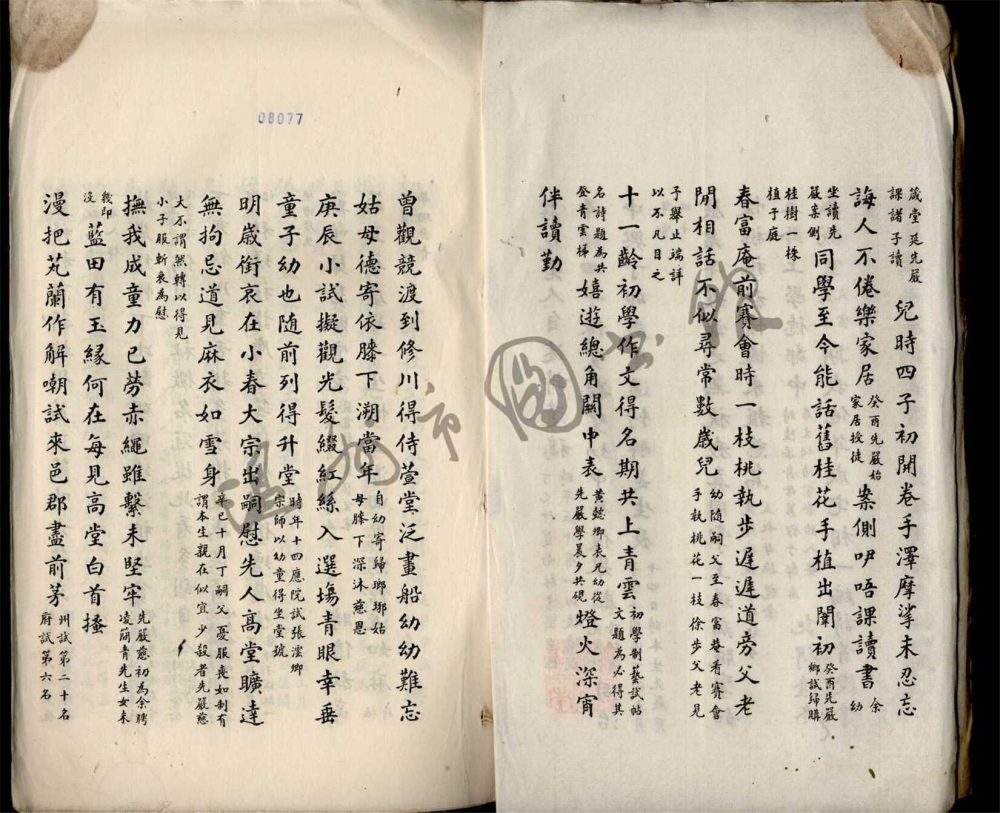 箴堂延先嚴
課諸子讀
兒時四子初開卷手澤摩挲未忍忘
誨人不倦樂家居
癸酉先嚴始
家居授徒
案側咿唔課讀書
余幼
坐讀先
嚴案側
同學至今能話舊桂花手植出闈初
癸酉先嚴
鄉試歸購
桂樹一株
植于庭
春富庵前賽會時一枝桃執步遲遲道旁父老
閒相話不似尋常數歲兒
幼隨嗣父至春富菴看賽會
手執桃花一枝徐步父老見
予舉止端詳
以不凡目之
十一齡初學作文得名期共上青雲
初學制藝試帖
文題為必得其
名詩題為共
登青雲梯
嬉遊總角關中表
黃懿卿表兄幼從
先嚴學晨夕共硯
燈火深宵
伴讀勤
08077
曾觀競渡到修川得侍萱堂泛畫船幼幼難忘
姑母德寄依膝下溯當年
自幼寄歸瑯琊姑
母膝下深沐慈恩
庚辰小試擬觀光髮綴紅絲入選場青眼幸垂
童子幼也隨前列得升堂
時年十四應院試張澐卿
宗師以幼童得坐堂號
明歲銜哀在小春大宗出嗣慰先人高堂曠達
無拘忌道見麻衣如雪身
辛巳十月丁嗣父憂服喪如制有
謂本生親在似宜少殺者先嚴慈
大不謂然轉以得見
小子服斬衰為慰
撫我成童力已勞赤繩雖繫未堅牢
先嚴慈初為余聘
凌蘭青先生女未
幾即
沒
藍田有玉緣何在每見高堂白首搔
漫把芄蘭作解嘲試來邑郡盡前茅
州試第二十名
府試第六名